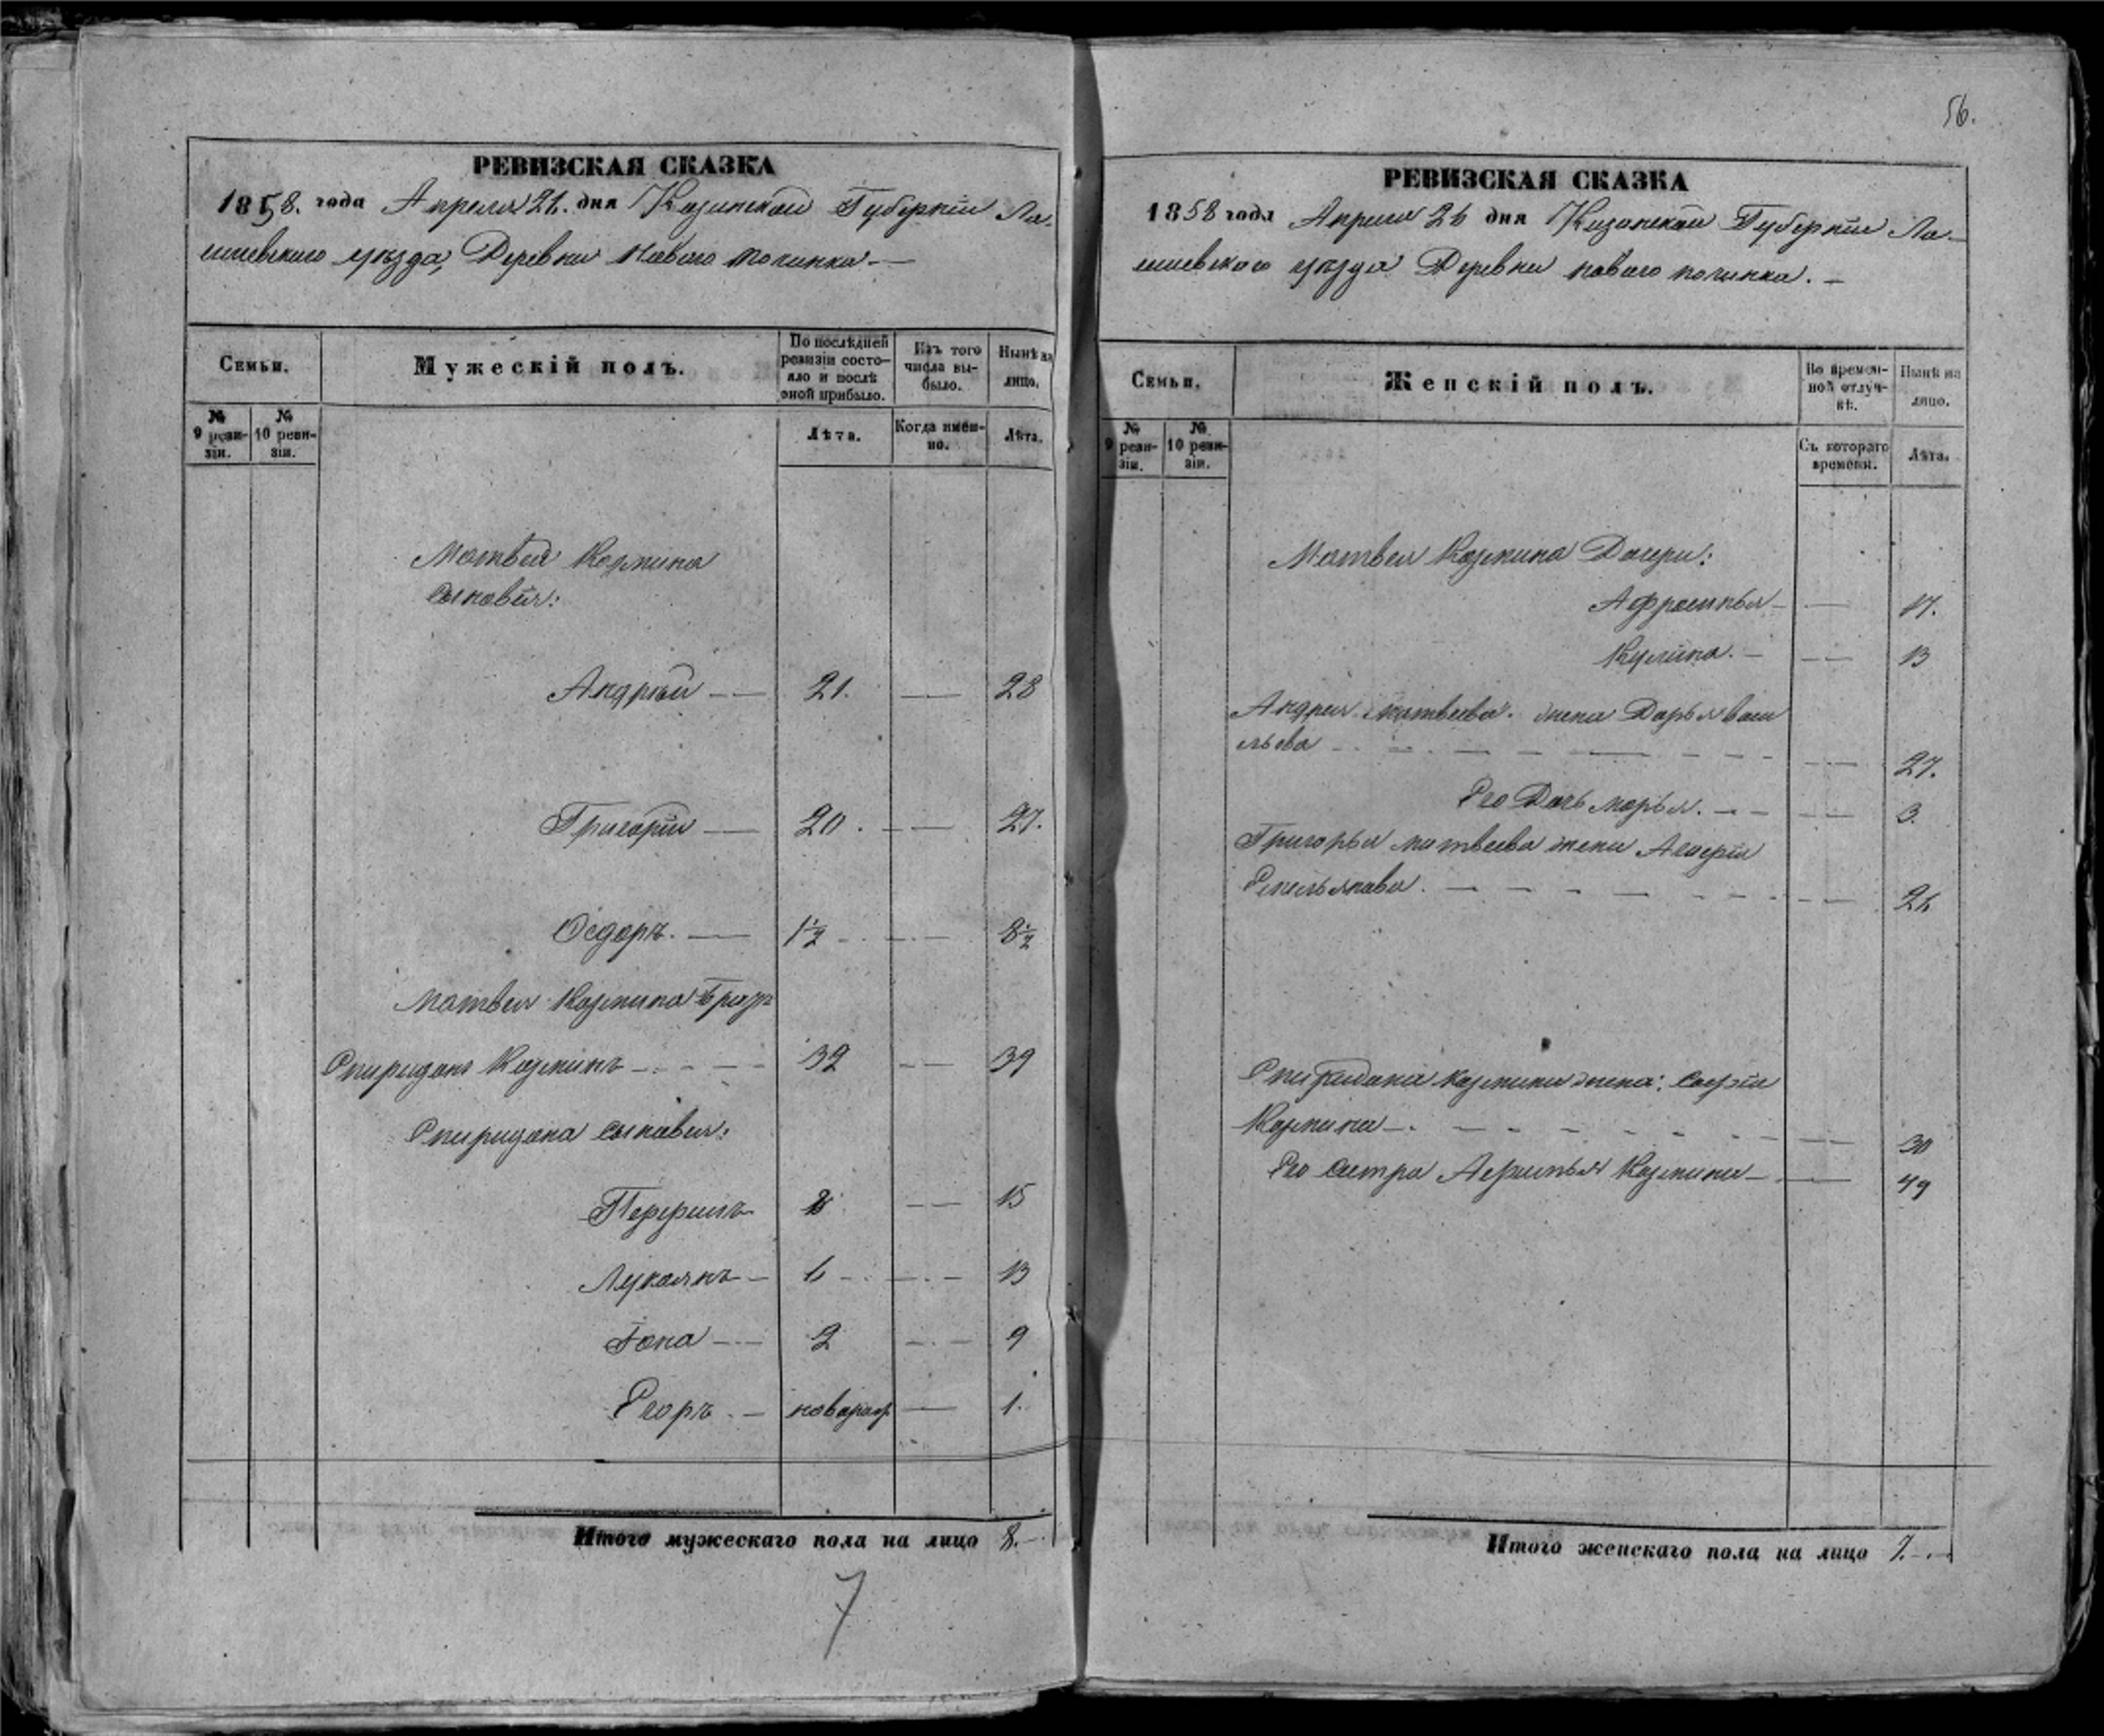 56.
РЕВИЗСКАЯ СКАЗКА
1858. года Апреля 26. дня Казанской Губернїи Ла-
ишевского уѣзда, Деревни Новаго починка —
Семьи.
Мужескій полъ.
По послѣдней ревизіи состо-яло и послѣ оной прибыло.
Изъ того числа вы-было.
Нынѣ на лицо.
№ 9 реви-зіи.
№ 10 реви-зіи.
Лѣта.
Когда имен-но.
Лѣта.
Матвея Козмина
сыновья:
Андрей — 21. — 28
Григорїй — 20. — 27.
Ѳедоръ. — 1½ — 8½
Матвея Козмина братъ
Спиридонъ Козминъ — 32 — 39
Спиридона сыновья:
Перфилъ 8 — 15
Лукоянъ — 6 — 13
Іона — 2 — 9
Егоръ. — новорож. — 1.
Итого мужескаго пола на лицо 8.
7
РЕВИЗСКАЯ СКАЗКА
1858 года Апреля 26 дня Казанской Губернїи Ла-
ишевского уѣзда Деревни новаго починка. —
Семьи.
Женскій полъ.
Во времен-ной отлуч-кѣ.
Нынѣ на лицо.
№ 9 реви-зіи.
№ 10 реви-зіи.
Съ котораго времени.
Лѣта.
Матвея Козмина Дочери:
Афросинья — — 17.
Кулина. — — 13
Андрея Матвеева. жена Дарья васи
льева — 27.
Его Дочь марья. — — 3.
Григорья матвеева жена
Емельянова. — 26
Спиридона козмина жена: Софья
Козмина — 30
Его сестра Козмина — 49
Итого женскаго пола на лицо 7.